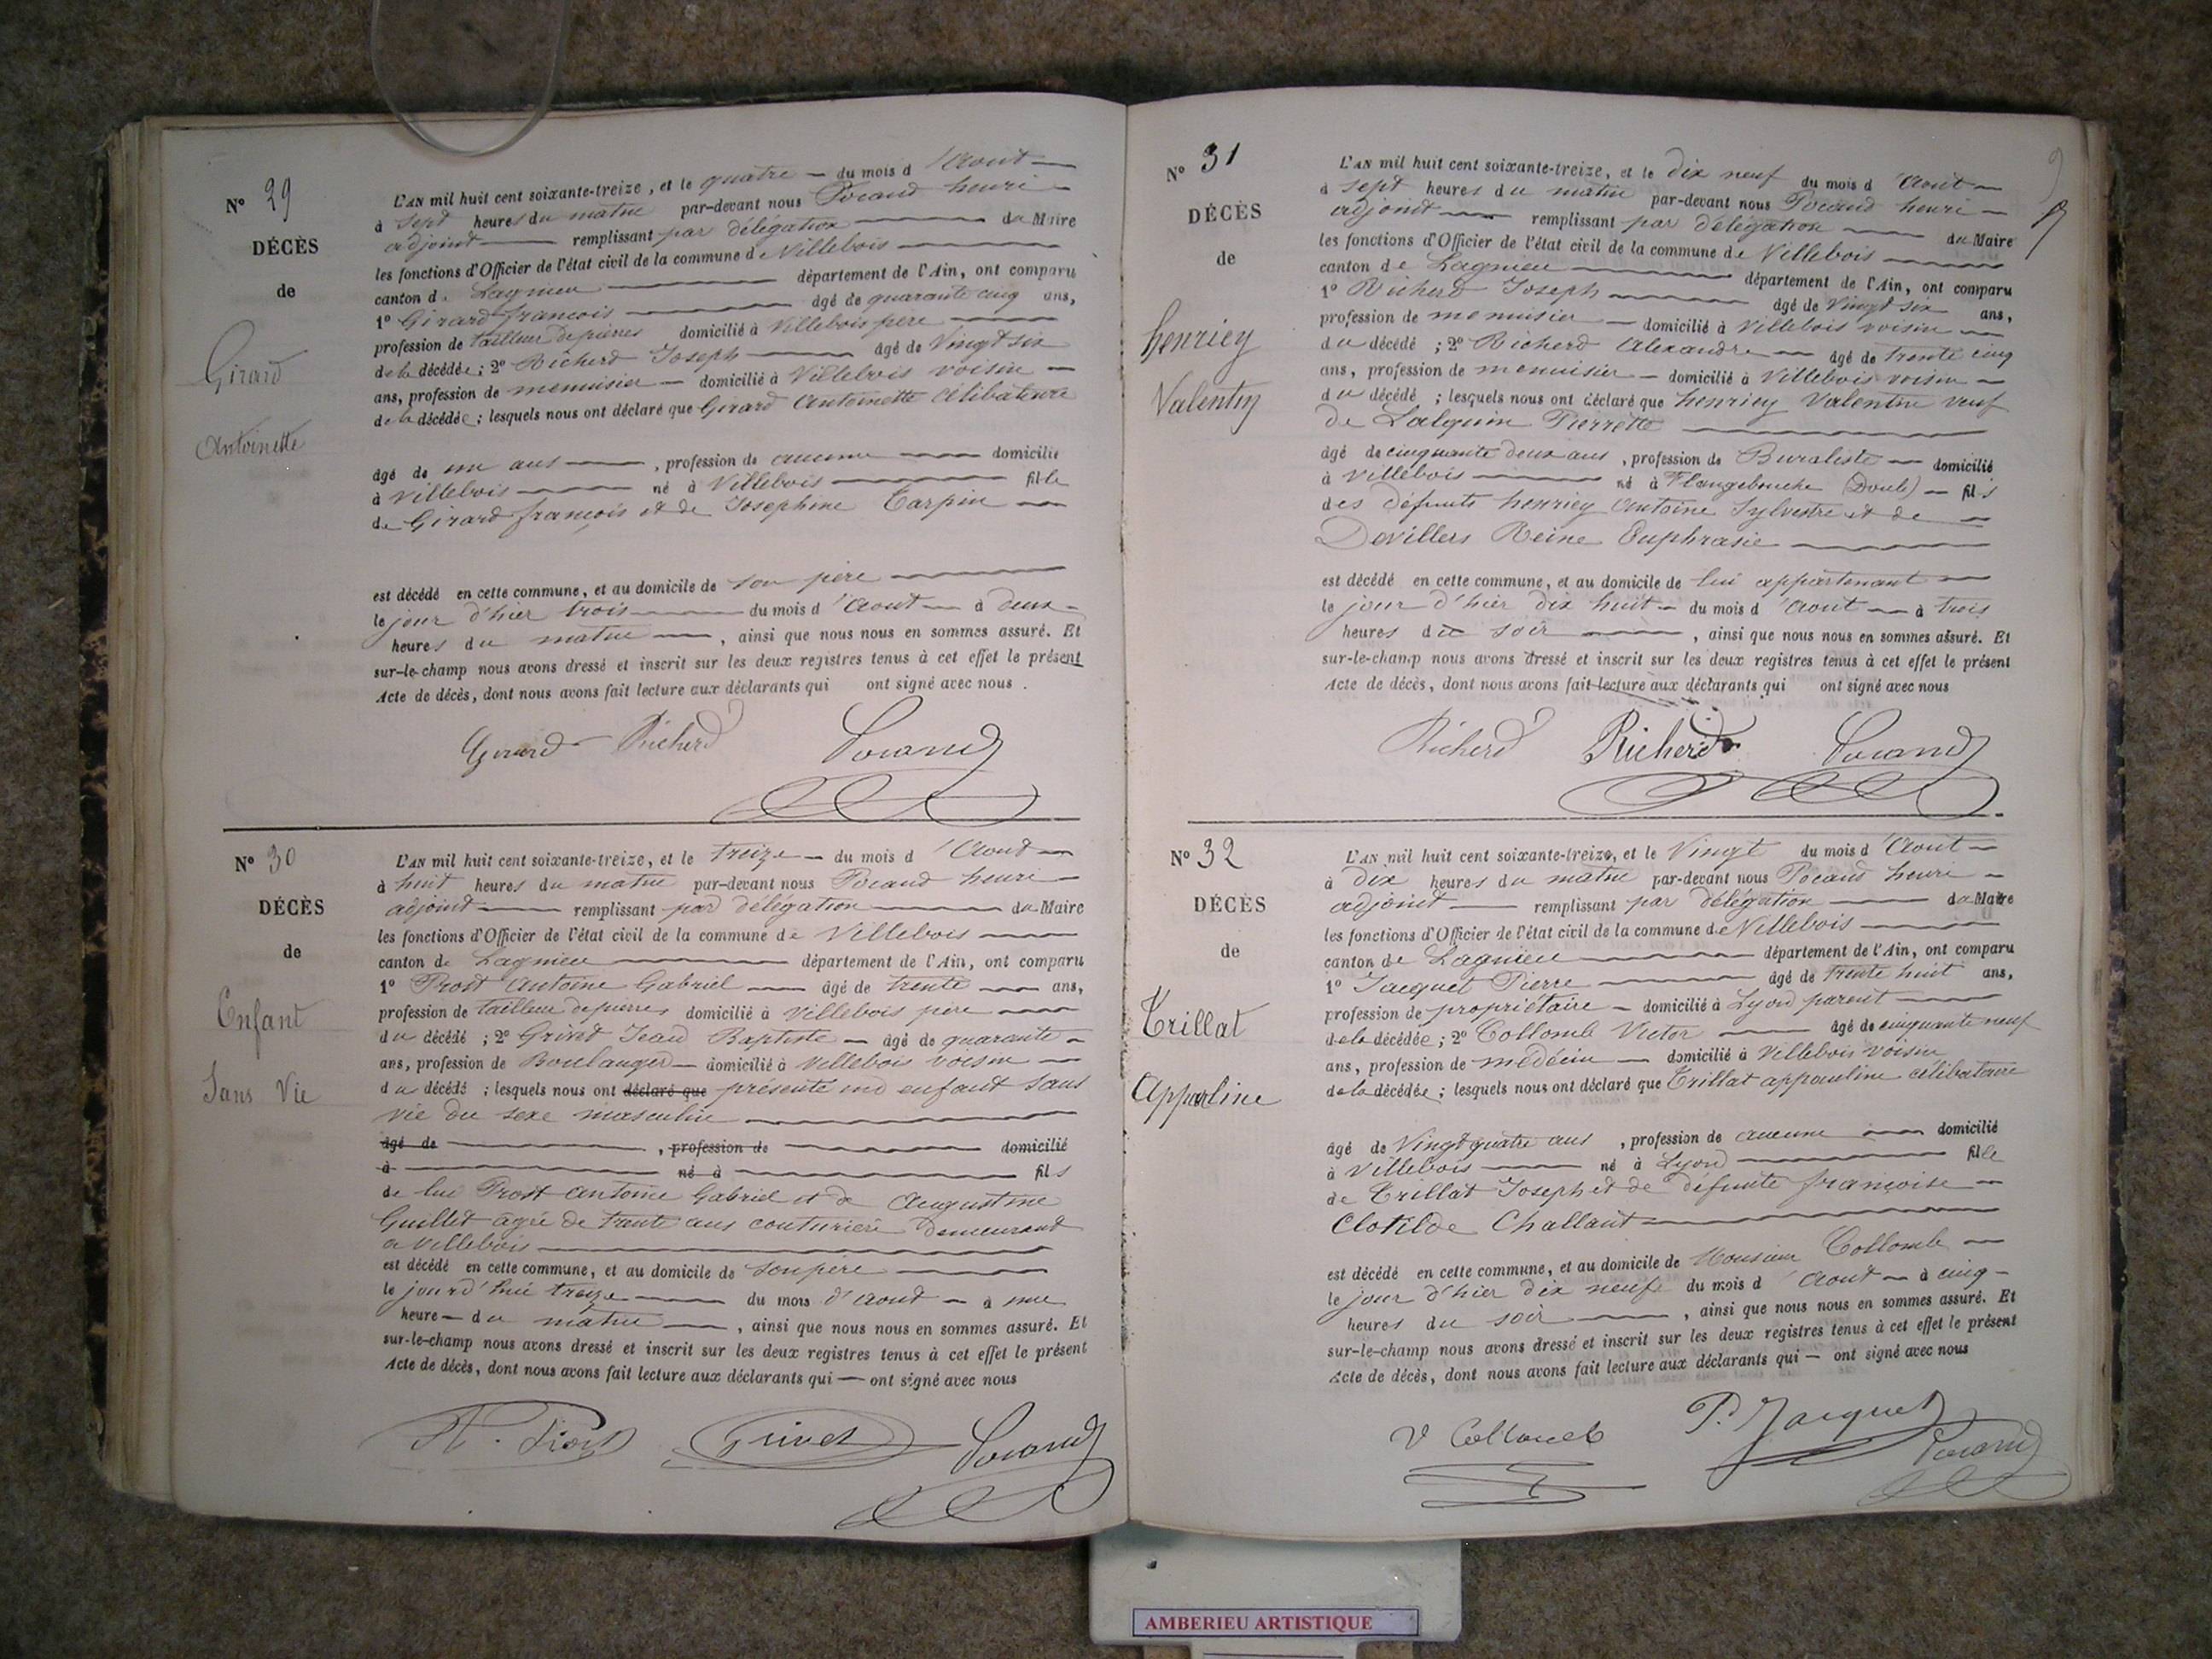 N° 29
DÉCÈS
de
Girard
Antoinette
L'AN mil huit cent soixante-treize, et le quatre du mois d'Aout
à sept heures du matin par-devant nous Pocand henri
adjoint remplissant par délégation du Maire
les fonctions d'Officier de l'état civil de la commune de Villebois
canton de Lagnieu département de l'Ain, ont comparu
1° Girard francois âgé de quarante cinq ans,
profession de tailleur de pierres domicilié à Villebois père
de la décédée; 2° Richerd Joseph âgé de Vingt six
ans, profession de menuisier domicilié à Villebois voisin
de la décédée; lesquels nous ont déclaré que Girard Antoinette célibataire
âgé de un ans, profession de aucune domicilié
à Villebois né à Villebois fille
de Girard françois et de Josephine Tarpin
est décédé en cette commune, et au domicile de son père
le jour d'hier trois du mois d'Aout à deux
heures du matin, ainsi que nous nous en sommes assuré. Et
sur-le-champ nous avons dressé et inscrit sur les deux registres tenus à cet effet le présent
Acte de décès, dont nous avons fait lecture aux déclarants qui ont signé avec nous.
Girard Richerd Pocand
N° 30
DÉCÈS
de
Enfant
Sans Vie
L'AN mil huit cent soixante-treize, et le treize du mois d'Aout
à huit heures du matin par-devant nous Pocand henri
adjoint remplissant par délégation du Maire
les fonctions d'Officier de l'état civil de la commune de Villebois
canton de Lagnieu département de l'Ain, ont comparu
1° Prost Antoine Gabriel âgé de trente ans,
profession de tailleur de pierres domicilié à Villebois père
du décédé; 2° Grivet Jean Baptiste âgé de quarante
ans, profession de Boulanger domicilié à Villebois voisin
du décédé; lesquels nous ont déclaré que présenté un enfant sans
vie du sexe masculin
âgé de , profession de domicilié
à né à fils
de lui Prost Antoine Gabriel et de Augustine
Guillet âgée de trente ans couturière demeurant
a Villebois
est décédé en cette commune, et au domicile de son père
le jourd'hui treize du mois d'Aout à une
heure du matin, ainsi que nous nous en sommes assuré. Et
sur-le-champ nous avons dressé et inscrit sur les deux registres tenus à cet effet le présent
Acte de décès, dont nous avons fait lecture aux déclarants qui ont signé avec nous
Prost Grivet Pocand
N° 31
DÉCÈS
de
henriey
Valentin
L'AN mil huit cent soixante-treize, et le dix neuf du mois d'Aout
à sept heures du matin par-devant nous Pocand henri
adjoint remplissant par délégation du Maire
les fonctions d'Officier de l'état civil de la commune de Villebois
canton de Lagnieu département de l'Ain, ont comparu
1° Richerd Joseph âgé de Vingt six ans,
profession de menuisier domicilié à Villebois voisin
du décédé; 2° Richerd Alexandre âgé de trente cinq
ans, profession de menuisier domicilié à Villebois voisin
du décédé; lesquels nous ont déclaré que henriey Valentin veuf
de Lalquim Pierrette
âgé de cinquante deux ans, profession de Buraliste domicilié
à Villebois né à Flangebouche (Doub) fils
des défunts henriey Antoine Sylvestre et de
Devillers Reine Euphrasie
est décédé en cette commune, et au domicile de lui appartenant
le jour d'hier dix huit du mois d'Aout à trois
heures du soir, ainsi que nous nous en sommes assuré. Et
sur-le-champ nous avons dressé et inscrit sur les deux registres tenus à cet effet le présent
Acte de décès, dont nous avons fait lecture aux déclarants qui ont signé avec nous
Richerd Richerd Pocand
N° 32
DÉCÈS
de
Trillat
Appauline
L'AN mil huit cent soixante-treize, et le Vingt du mois d'Aout
à dix heures du matin par-devant nous Pocand henri
adjoint remplissant par délégation du Maire
les fonctions d'Officier de l'état civil de la commune de Villebois
canton de Lagnieu département de l'Ain, ont comparu
1° Jacquet Pierre âgé de trente huit ans,
profession de propriétaire domicilié à Lyon parent
de la décédée; 2° Collomb Victor âgé de cinquante neuf
ans, profession de médecin domicilié à Villebois voisin
de la décédée; lesquels nous ont déclaré que Trillat appauline célibataire
âgé de Vingt quatre ans, profession de aucune domicilié
à Villebois né à Lyon fille
de Trillat Joseph et de défunte françoise
Clotilde Challant
est décédé en cette commune, et au domicile de Monsieur Collomb
le jour d'hier dix neuf du mois d'Aout à cinq
heures du soir, ainsi que nous nous en sommes assuré. Et
sur-le-champ nous avons dressé et inscrit sur les deux registres tenus à cet effet le présent
Acte de décès, dont nous avons fait lecture aux déclarants qui ont signé avec nous
V Collomb P. Jacquet Pocand
AMBERIEU ARTISTIQUE